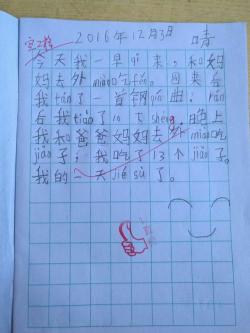 2016年12月3日 晴
今天我一早qǐ来,和妈
妈去外miàn吃fàn。回来后
我tán了一首钢qín曲;rán
后我tiào了10下shéng,晚上
我和爸爸妈妈去外miàn吃
jiǎo子;我吃了13个jiǎo子。
我的一天jié sù了。